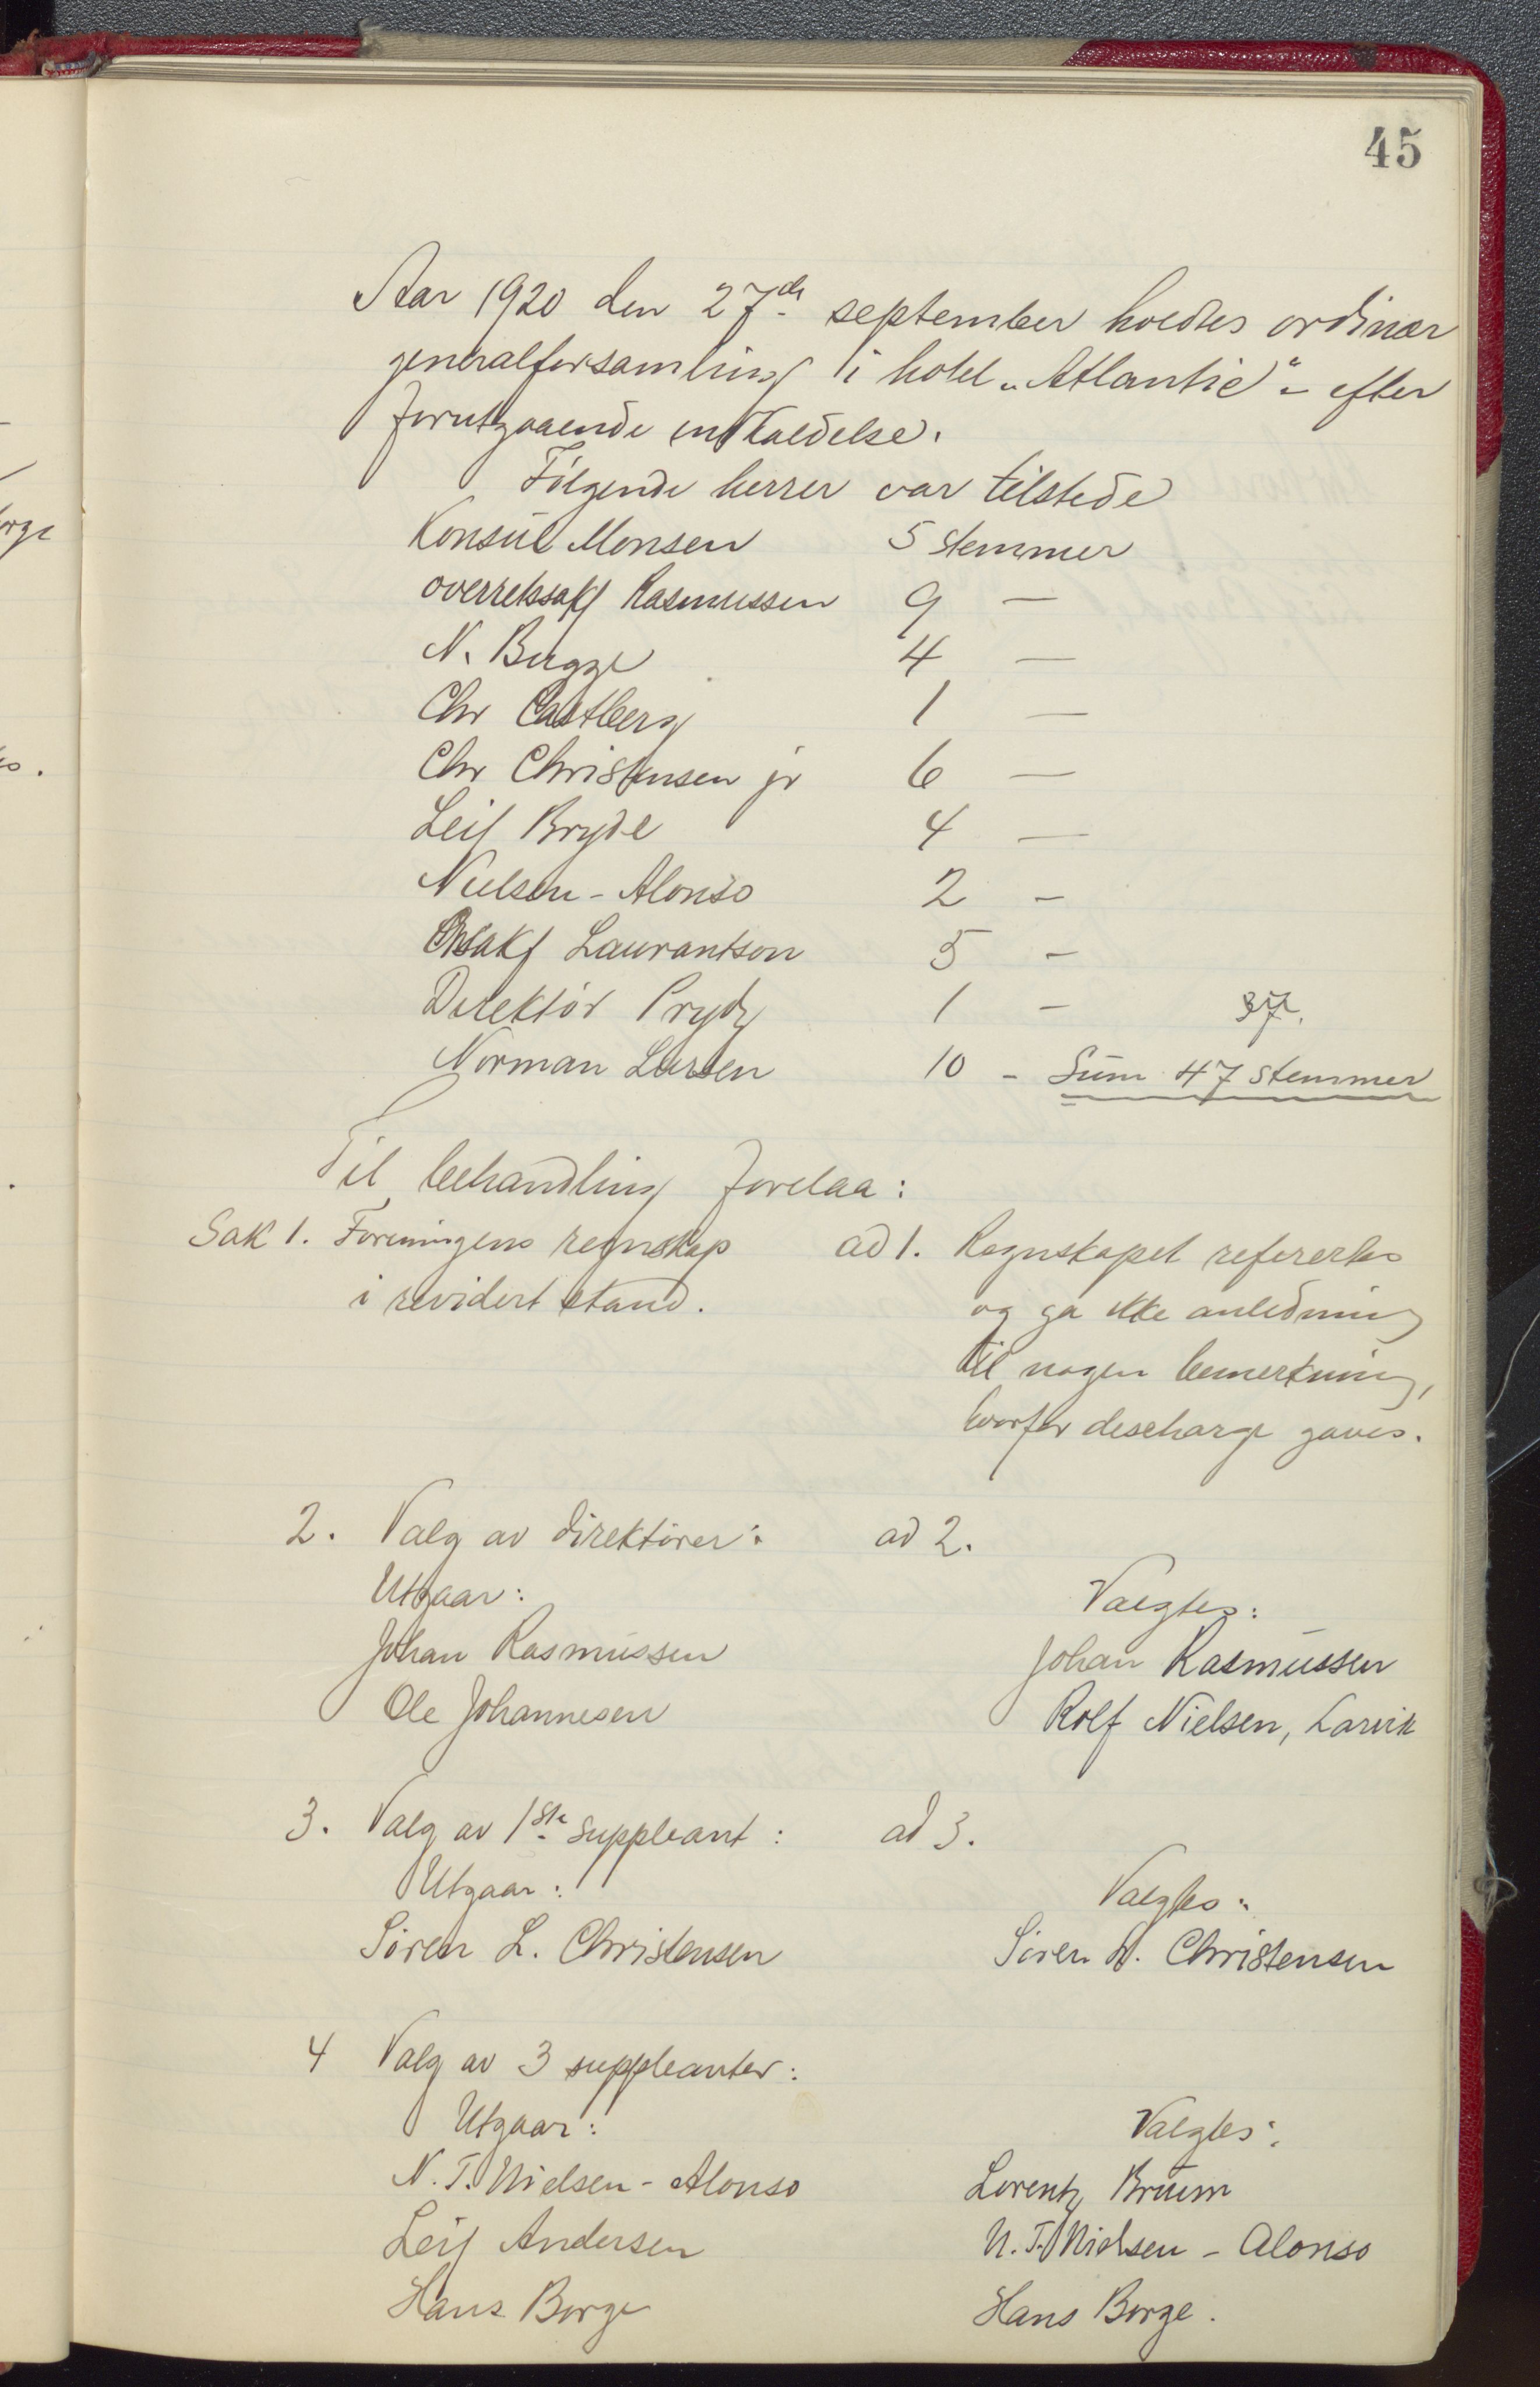 45
Aar 1920 den 27de september holdtes ordinær
generalforsamling i hotel „Atlantic" - efter
forutgaaende indkaldelse.
Følgende herrer var tilstede
Konsul Monsen 5 stemmer
overretssakf Rasmussen 9 —
N. Bugge 4 —
Chr Castberg 1 —
Chr Christensen jr 6 —
Leif Bryde 4 —
Nielsen-Alonso 2 -
Orsakf Laurantson 5 -
Direktør Prydz 1 - 37.
Norman Larsen 10 - Sum 47 stemmer
Til behandling forelaa:
Sak 1. Foreningens regnskap
i revidert stand.
ad 1. Regnskapet referertes
og ga ikke anledning
til nogen bemerkning,
hvorfor descharge gaves.
2. Valg av direktører:
Utgaar:
Johan Rasmussen
Ole Johannesen
ad 2.
Valgtes:
Johan Rasmussen
Rolf Nielsen, Larvik
3. Valg av 1ste suppleant:
Utgaar:
Søren L. Christensen
ad 3.
Valgtes:
Søren L. Christensen
4 Valg av 3 suppleanter:
Utgaar:
N. T. Nielsen-Alonso
Leif Andersen
Hans Borge
Valgtes:
Lorentz Bruun
N. T. Nielsen - Alonso
Hans Borge.